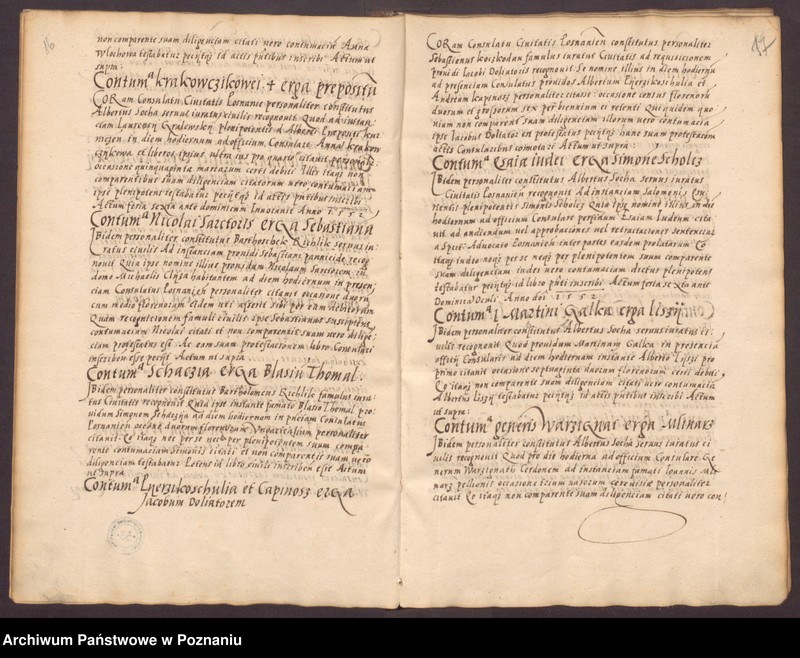 16
non comparente suam diligenciam citati uero contumaciam Anna
Wlochowa testabatur petiitq id actis pntibus inscribi Actum ut
supra:
Contum krakowczikowei + erga prepositu
CORam Consulatu Ciuitatis Losnanie personaliter constitutus
Albertus Socha seruus iuratus ciuilis recognouit Quod ad instan
ciam Laurencij Gralowsky plenipotentis d Alberti
in diem hodiernum ad officium Consulare Annā krakow
czikowa et liberos ipsius ultra ius pro quarto citauit personalr
occasione quinquaginta marcarum certi debiti Illis itaq non
comparentibus suam diligenciam citatorum uero contumaciam
ipse plenipotens testabatur petiitq id actis pntibus inscribi
Actum feria sexta ante dominicam Inuocauit Anno 1552
Contum Nicolai Sartoris erga Sebastianū
Ibidem personaliter constitutus Barthoschek Richlik seruus iu
ratus ciuilis Ad instanciam prouidi Sebastiani pannicide recog
nouit Quia ipse nomine illius prouidum Nicolaum Sartorem in
domo Michaelis habitantem ad diem hodiernum in presen
ciam Consulatus Losnanien personaliter citauit occasione duoru
cum medio florenorum eidem uti asserit sibi per eum debitorum
Quam recognitionem famuli ciuilis ipse Sebastianus suscipiens
contumaciam Nicolai citati et non comparentis suam uero dilige
ciam protestatus est Ac eam suam protestacionem libro Consulari
inscribi esse petiit Actum ut supra
Contum Schaczia erga Blasiū Thomal.
Ibidem personaliter constitutus Bartholomeus Richlik famulus iura
tus Ciuitatis recognouit Quia ipse instante famato Blasio Thomal pro
uidum Simonem Schaczia ad diem hodiernum in pnciam Consulatus
Losnanien occone duorum florenorum personaliter
citauit Eo itaq nec per se nec per plenipotentem suum compa
rente contumaciam Simonis citati et non comparentis suam uero
diligenciam testabatur libro ciuili inscriben esse Actum
ut supra
Contum et Capinosz erga
Jacobum Doliatorem
17
CORam Consulatu Ciuitatis Losnanien constitutus personaliter
Sebastianus koszkodan famulus iuratus Ciuitatis ad requisicionem
prouidi Iacobi Doliatoris recognouit Se nomine illius in diem hodiernū
ad presenciam Consulatus prouidos Albertum et
Andream kapinosz personaliter citasse occasione census florenoru
duorum et grossorum sex per biennium et retenti Qui quidem quo
niam non comparent suam diligenciam illorum uero contumacia
ipse Iacobus Doliator est protestatus petiitq hanc suam protestacem
actis Consularibus Actum ut supra:
Contum Esaie iudei erga Simone Scholcz
Ibidem personaliter constitutus Albertus Socha seruus iuratus
Ciuitatis Losnanien recognouit Ad instanciam Salomonis
nentis plenipotentis Simonis Scholcz Quia ipse nomine illius in die
hodiernum ad officium Consulare perfidum Esaiam Iudeum cita
uit ad audiendum uel approbaciones uel retractaciones sentencie
a Spcti Aduocato Losnanien inter partes easdem prolatarum Eo
itaq iudeo neq per se neq per plenipotentem suum comparente
suam diligenciam iudei uero contumaciam dictus plenipotens
testabatur petiitq id libro pnti inscribi Actum feria sexta ante
Dominica Oculi Anno doi 1552
Contum Martini Galka erga Liszij
Ibidem personaliter constitutus Albertus Socha seruus iuratus ci
uilis recognouit Quod prouidum Martinum Galka in presencia
officij Consularis ad diem hodiernum instante Alberto Lyszi pro
primo citauit occasione septuaginta duorum florenorum certi debiti
Eo itaq non comparente suam diligenciam citati uero contumacia
Albertus Liszij testabatur petiitq id actis pntibus inscribi Actum
ut supra:
Contum generi Warzignar erga Mlinarz
Ibidem personaliter constitutus Albertus Socha seruus iuratus ci
uilis recognouit Quod pro die hodierna ad officium Consulare Ge
nerum Cerdonem ad instanciam famati Ioannis Mli
narz pellionis occasione trium uasorum cereuisie personaliter
citauit Eo itaq non comparente suam diligenciam citati uero con
Archiwum Państwowe w Poznaniu